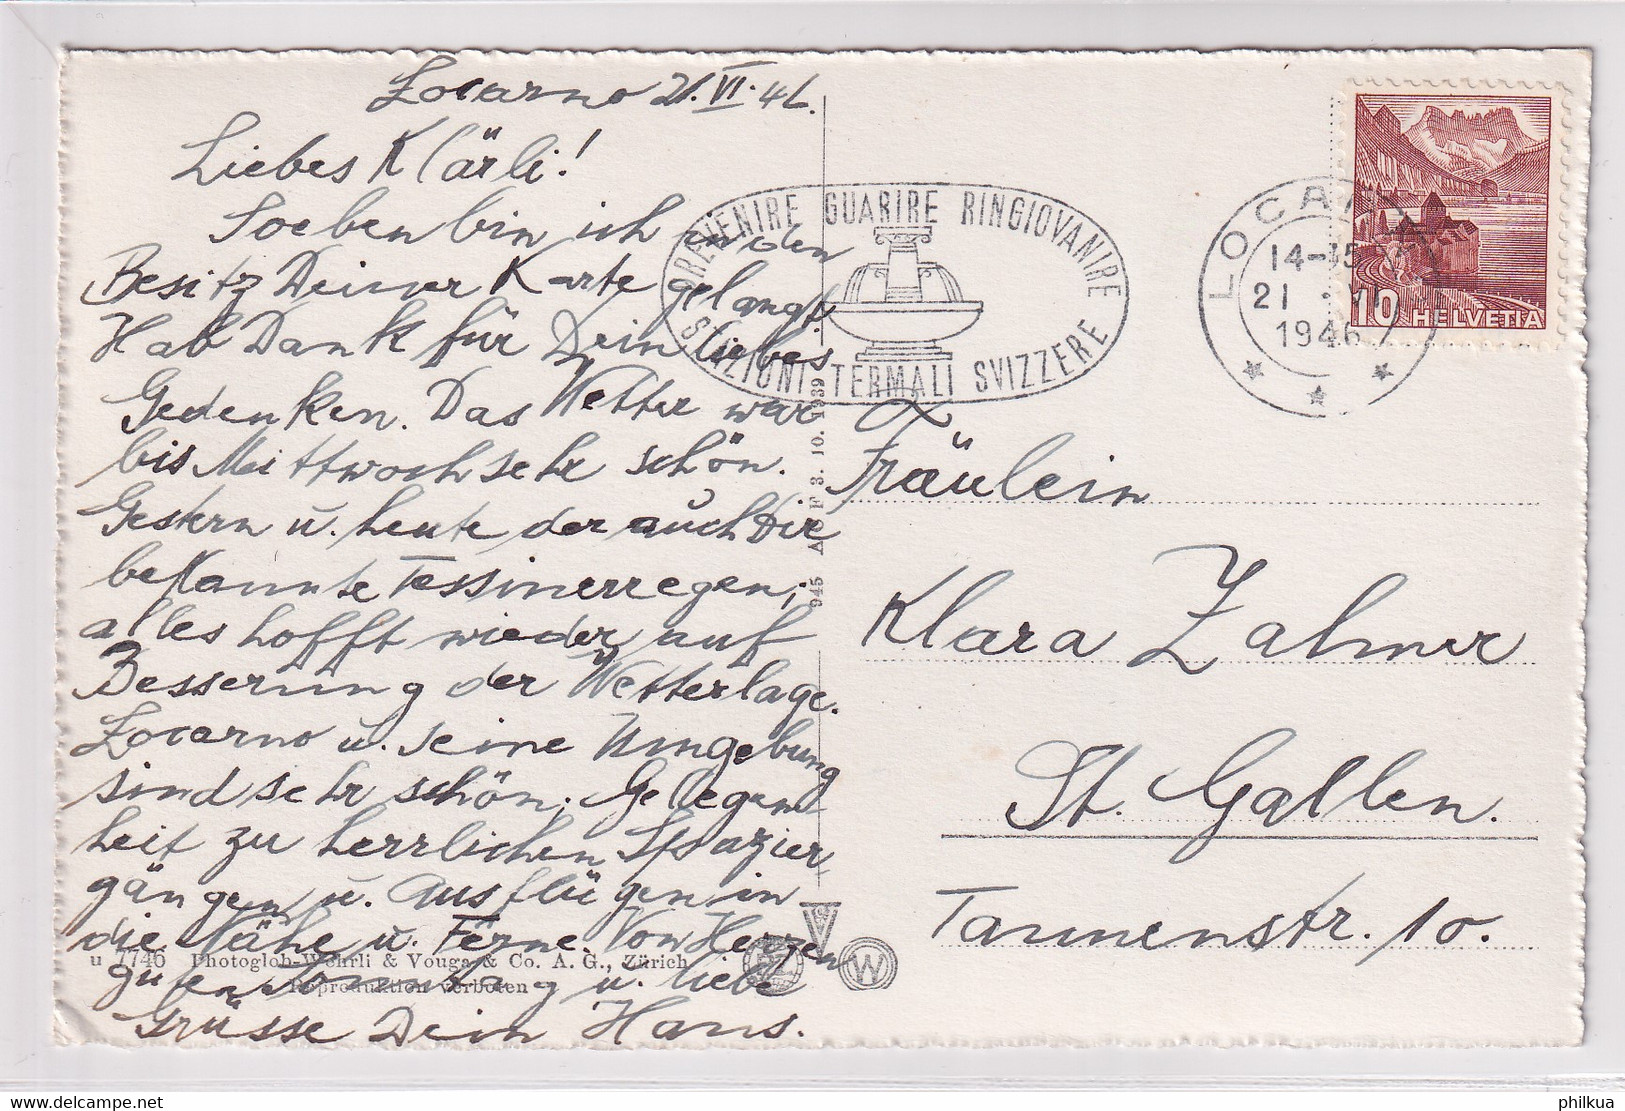 Locarno 21. VI. 46.
Liebes Klärli!
Soeben bin ich in den
Besitz Deiner Karte gelangt
Hab Dank für Dein liebes
Gedenken. Das Wetter war
bis Mittwoch sehr schön.
Gestern u. heute der auch Dir
bekannte Tessinerregen,
alles hofft wieder auf
Besserung der Wetterlage.
Locarno u. seine Umgebung
sind sehr schön, Gelegen
heit zu herrlichen Spazier
gängen u. Ausflügen in
die Nähe u. Ferne. Von Herzen
guten Sonntag u. liebe
Grüsse Dein Hans.
u 7746 Photoglob-Wehrli & Vouga & Co. A. G., Zürich
Reproduktion verboten
945 3. 10. 1939
PREVENIRE GUARIRE RINGIOVANIRE
STAZIONI TERMALI SVIZZERE
LOCARNO
14-15
21 · VI
1946
10 HELVETIA
Fräulein
Klara Zahner
St. Gallen.
Tannenstr. 10.
W
philkua
www.delcampe.net